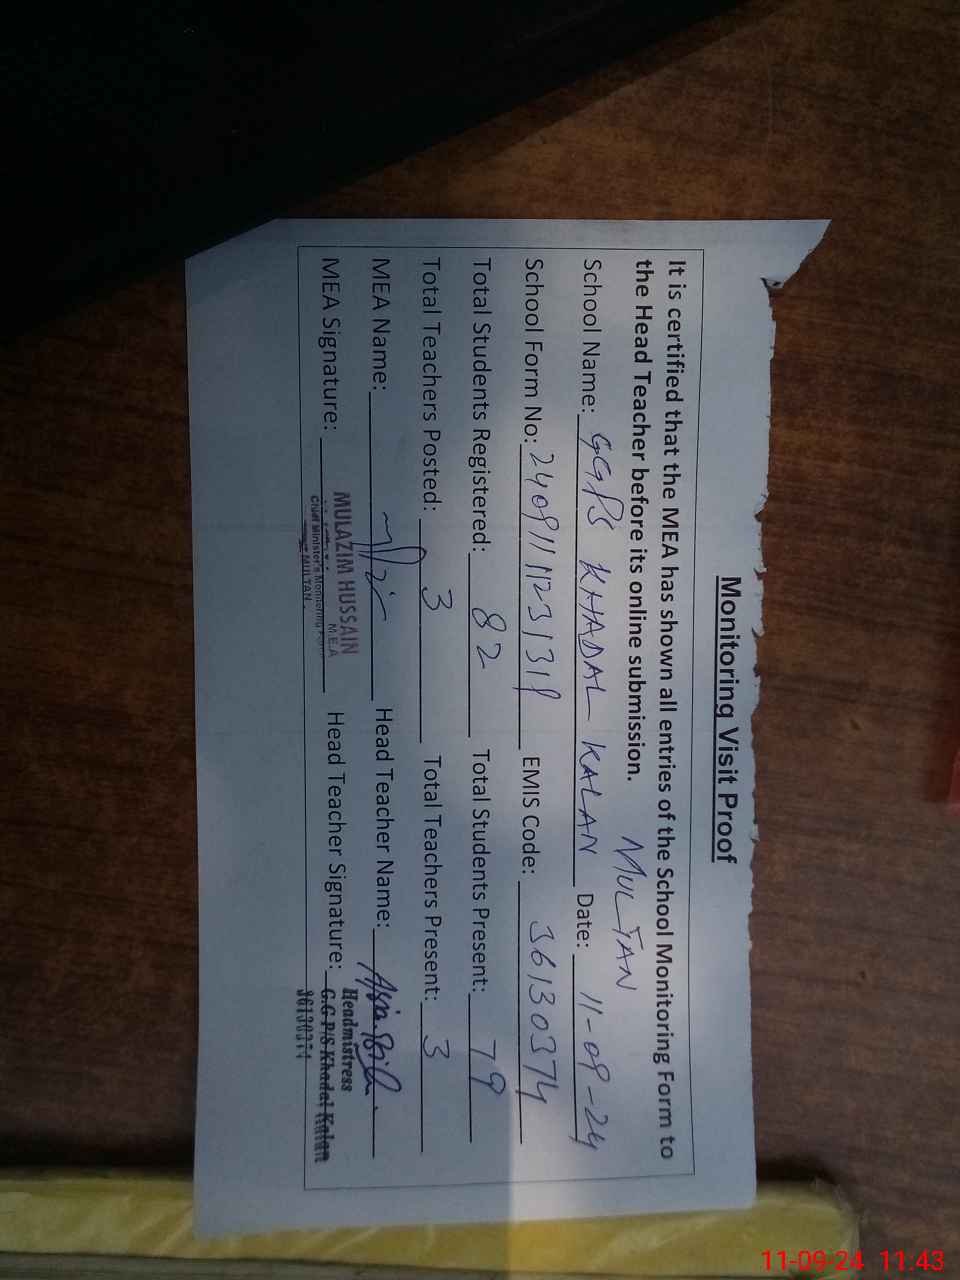 Monitoring Visit Proof
It is certified that the MEA has shown all entries of the School Monitoring Form to
the Head Teacher before its online submission. MULTAN
School Name: GGPS KHADAL KALAN Date: 11-09-24
School Form No: EMIS Code: 36130374
Total Students Registered: 82 Total Students Present: 79
Total Teachers Posted: 3 Total Teachers Present: 3
MEA Name: Head Teacher Name:
MEA Signature: Head Teacher Signature:
MULAZIM HUSSAIN
M.E.A
Chief Minister's Monitoring Force
MULTAN.
Headmistress
G.G P/S Khadal Kalan
36130374
11-09-24 11:43